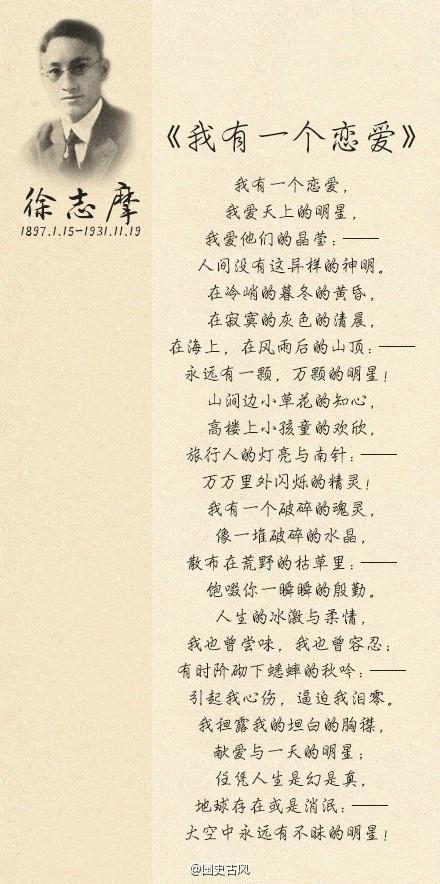 徐志摩
1897.1.15-1931.11.19
《我有一个恋爱》
我有一个恋爱，
我爱天上的明星，
我爱他们的晶莹：——
人间没有这异样的神明。
在冷峭的暮冬的黄昏，
在寂寞的灰色的清晨，
在海上，在风雨后的山顶：——
永远有一颗，万颗的明星！
山涧边小草花的知心，
高楼上小孩童的欢欣，
旅行人的灯亮与南针：——
万万里外闪烁的精灵！
我有一个破碎的魂灵，
像一堆破碎的水晶，
散布在荒野的枯草里：——
饱啜你一瞬瞬的殷勤。
人生的冰激与柔情，
我也曾尝味，我也曾容忍；
有时阶砌下蟋蟀的秋吟：——
引起我心伤，逼迫我泪零。
我袒露我的坦白的胸襟，
献爱与一天的明星；
任凭人生是幻是真，
地球存在或是消泯：——
大空中永远有不昧的明星！
@国史古风